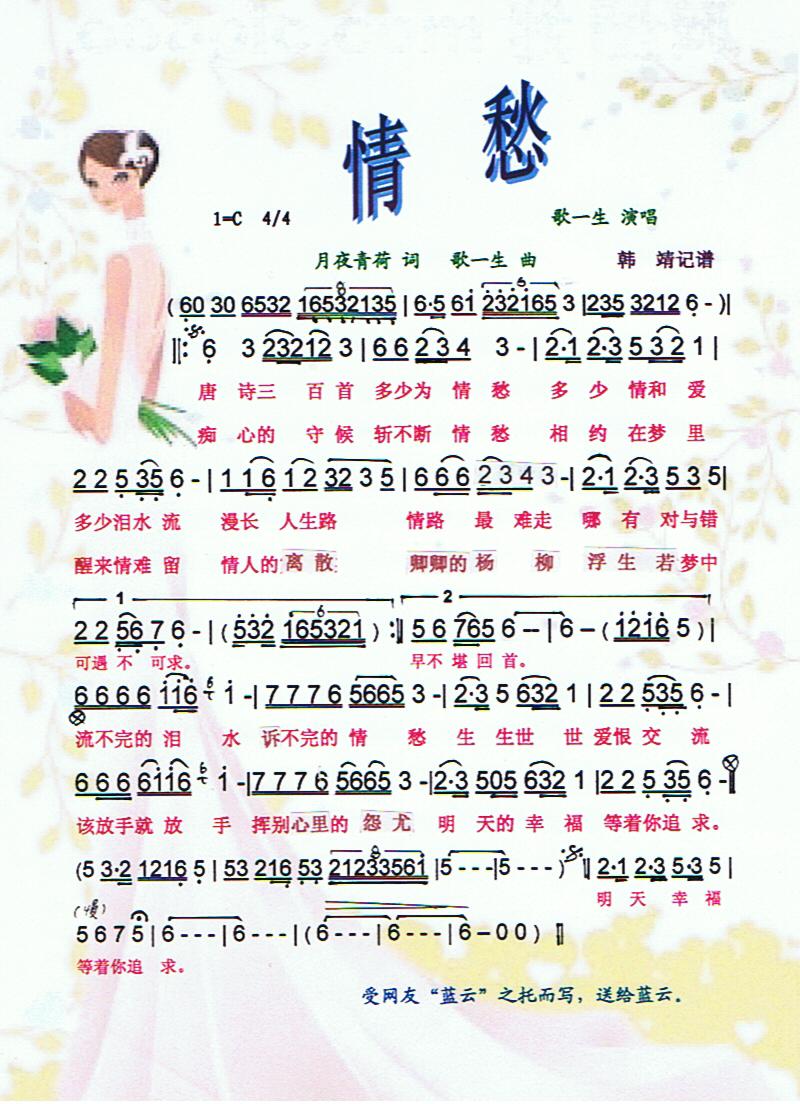 情 愁
1=C 4/4 歌一生 演唱
月夜青荷 词 歌一生 曲 韩 靖记谱
(60 30 6532 16532135 | 6·5 61 232165 3 | 235 3212 6 - )|
‖: 6 3 23212 3 | 6 6 2 3 4 3 - | 2·1 2·3 5 3 2 1 |
唐 诗三 百 首 多少为 情 愁 多 少 情和 爱
痴 心的 守 候 斩不断 情 愁 相 约 在梦 里
2 2 5 35 6 - | 1 1 6 1 2 32 3 5 | 6 6 6 2 3 4 3 - | 2·1 2·3 5 3 5 |
多少泪水 流 漫长 人生路 情路 最 难走 哪 有 对与错
醒来情难 留 情人的 离 散 卿卿的 杨 柳 浮 生 若 梦中
1 2
2 2 56 7 6 - | (532 165321 ) :‖ 5 6 765 6 -- | 6 - (1216 5 )|
可遇 不 可求。 早不 堪 回 首。
6 6 6 6 116 1 - | 7 7 7 6 5665 3 - | 2·3 5 632 1 | 2 2 535 6 - |
流不完的 泪 水 诉不完的 情 愁 生 生世 世 爱恨 交 流
6 6 6 6116 1 - | 7 7 7 6 5665 3 - | 2·3 505 632 1 | 2 2 5 35 6 - ‖
该放手就 放 手 挥别心里的 怨 尤 明 天的 幸 福 等着你追 求。
(5 3·2 1216 5 | 53 216 53 21233561 | 5 - - - | 5 - - - ) ‖ 2·1 2·3 5·3 5 |
明 天 幸 福
(慢)
5 6 7 5 | 6 - - - | 6 - - - | (6 - - - | 6 - - - | 6 - 0 0 ) ‖
等着你追 求。
受网友“蓝云”之托而写，送给蓝云。